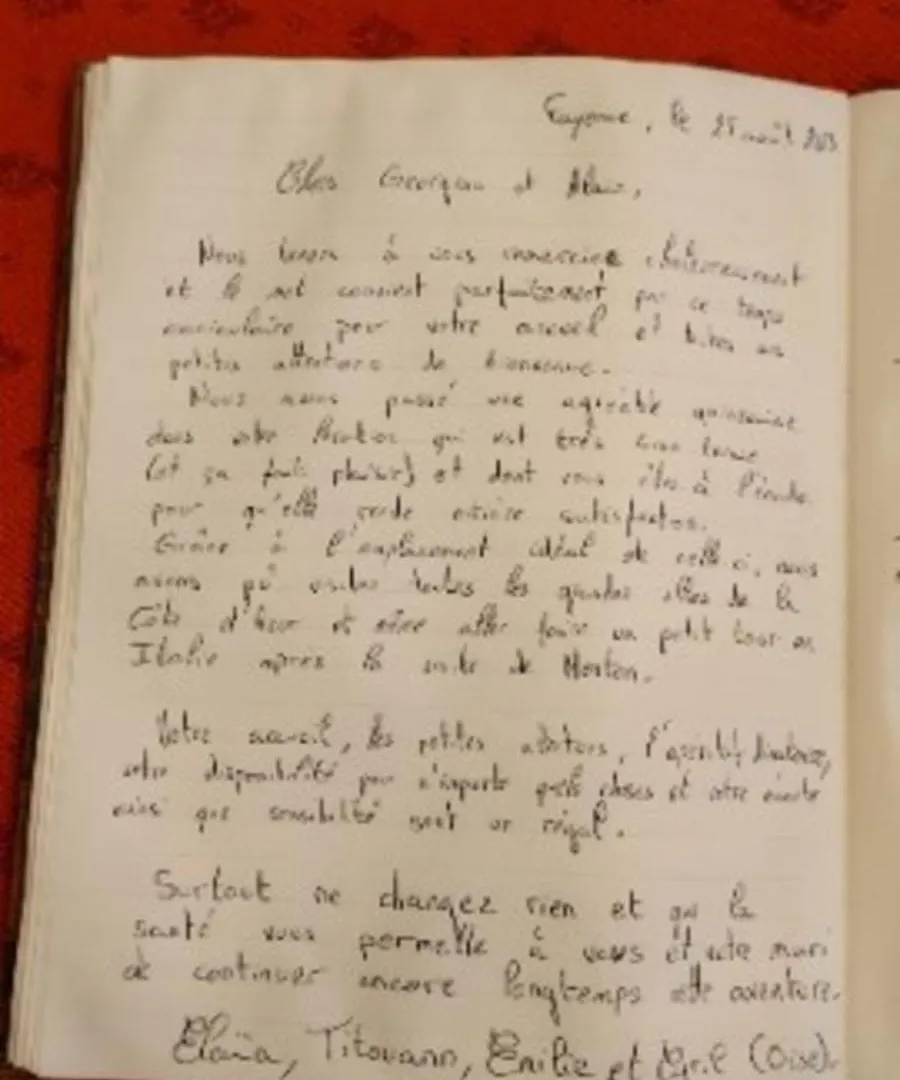 Fayence, le 25 août 2023
Chers et Alain,
Nous tenons à vous remercier chaleureusement
et le mot convient parfaitement par ce temps
caniculaire pour votre accueil et toutes vos
petites attentions de bienvenue.
Nous avons passé une agréable quinzaine
dans votre location qui est très bien tenue
(et ça fait plaisir) et dont vous êtes à l'écoute
pour qu'elle rende entière satisfaction.
Grâce à l'emplacement idéal de celle ci, nous
avons pû visiter toutes les grandes villes de la
Côte d'Azur et même aller faire un petit tour en
Italie après la visite de Menton.
Votre accueil, les petites attentions, l'apéritif
votre disponibilité pour n'importe quelle choses et votre écoute
ainsi que sensibilité sont un régal.
Surtout ne changez rien et que la
santé vous permette à vous et votre mari
de continuer encore longtemps cette aventure.
Titouann, Emilie et Cyril (Oise).